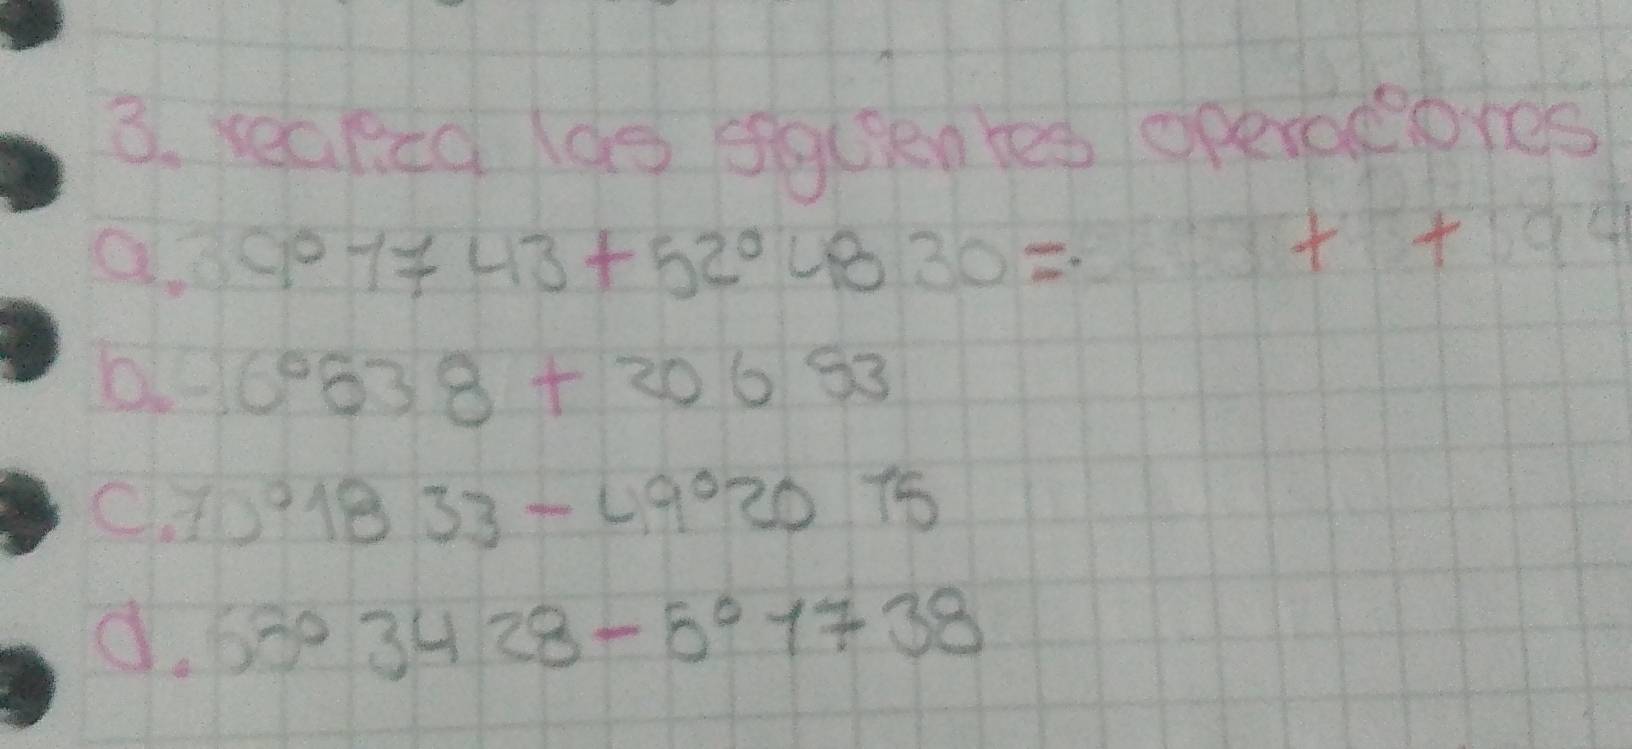 3. realiza las siguientes operaciones
a. 39° 17 43 + 52° 48 30 = + + 94
b. 16° 53 8 + 20 6 53
c. 70° 18 33 - 49° 20 15
d. 58° 34 28 - 5° 17 38